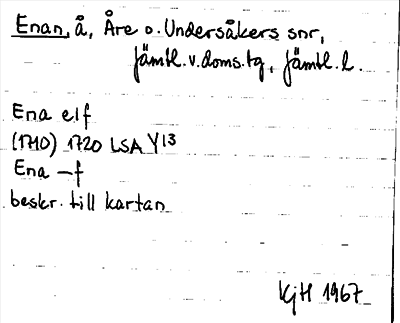 Enan, å, Åre o. Undersåkers snr,
Jämtl. v. doms. tg, Jämtl. l.
Ena elf
(1710) 1720 LSA Y13
Ena –f
beskr. till kartan
KjH 1967